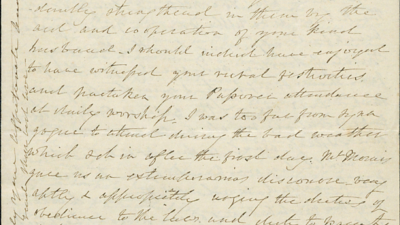 strengthened in them by the
aid and cooperation of your kind
husband. I should indeed have enjoyed
to have witnessed your rural festivities
and partaken your Passover attendances
at daily worship. I was to far from Syna
gogue to attend during the bad weather
which set in after the first day. Mr
gave us an extemporarious discourse very
aptly & appropriately urging the duties of
obedience to the laws and